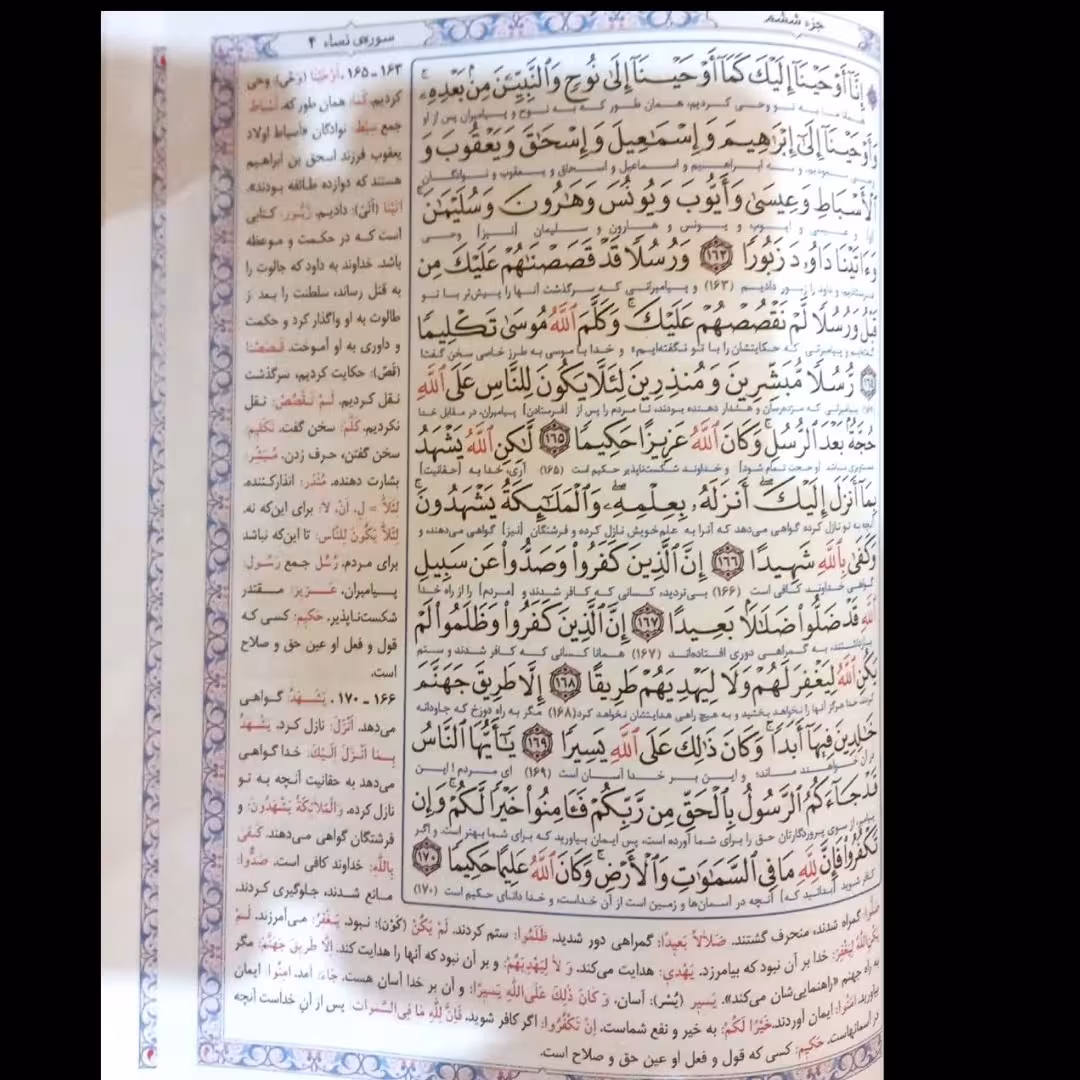 جزء ششم
سوره‌ی نساء ۴
إِنَّآ أَوْحَيْنَآ إِلَيْكَ كَمَآ أَوْحَيْنَآ إِلَىٰ نُوحٍ وَٱلنَّبِيِّـۧنَ مِنۢ بَعْدِهِۦ
همان طور که به نوح و پیامبران پس از او
وَأَوْحَيْنَآ إِلَىٰٓ إِبْرَٰهِيمَ وَإِسْمَٰعِيلَ وَإِسْحَٰقَ وَيَعْقُوبَ وَ
وحی نمودیم، و به ابراهیم و اسماعیل و اسحاق و یعقوب و نوادگان
ٱلْأَسْبَاطِ وَعِيسَىٰ وَأَيُّوبَ وَيُونُسَ وَهَٰرُونَ وَسُلَيْمَٰنَ
و عیسی و ایوب و یونس و هارون و سلیمان [نیز] وحی
وَءَاتَيْنَا دَاوُۥدَ زَبُورًا ﴿۱۶۳﴾ وَرُسُلًا قَدْ قَصَصْنَٰهُمْ عَلَيْكَ مِن
فرستادیم، و داود را زبور دادیم (۱۶۳) و پیامبرانی که سرگذشت آنها را پیش‌تر با تو
قَبْلُ وَرُسُلًا لَّمْ نَقْصُصْهُمْ عَلَيْكَ ۚ وَكَلَّمَ ٱللَّهُ مُوسَىٰ تَكْلِيمًا
گفته‌ایم و پیامبرانی که حکایتشان را با تو نگفته‌ایم؛ و خدا با موسی به طرز خاصی سخن گفت
﴿۱۶۴﴾ رُّسُلًا مُّبَشِّرِينَ وَمُنذِرِينَ لِئَلَّا يَكُونَ لِلنَّاسِ عَلَى ٱللَّهِ
پیامبرانی که مژده‌رسان و هشدار دهنده بودند، تا مردم را پس از [فرستادن] پیامبران، در مقابل خدا
حُجَّةٌۢ بَعْدَ ٱلرُّسُلِ ۚ وَكَانَ ٱللَّهُ عَزِيزًا حَكِيمًا ﴿۱۶۵﴾ لَّٰكِنِ ٱللَّهُ يَشْهَدُ
دستاویزی نباشد [و حجت تمام شود] و خداوند شکست‌ناپذیر حکیم است (۱۶۵) آری، خدا به [حقانیت]
بِمَآ أَنزَلَ إِلَيْكَ ۖ أَنزَلَهُۥ بِعِلْمِهِۦ ۖ وَٱلْمَلَٰٓئِكَةُ يَشْهَدُونَ ۚ
آنچه به تو نازل کرده گواهی می‌دهد که آنرا به علم خویش نازل کرده و فرشتگان [نیز] گواهی می‌دهند، و
وَكَفَىٰ بِٱللَّهِ شَهِيدًا ﴿۱۶۶﴾ إِنَّ ٱلَّذِينَ كَفَرُوا۟ وَصَدُّوا۟ عَن سَبِيلِ
گواهی خداوند کافی است (۱۶۶) بی‌تردید، کسانی که کافر شدند و [مردم] را از راه خدا
ٱللَّهِ قَدْ ضَلُّوا۟ ضَلَٰلًۢا بَعِيدًا ﴿۱۶۷﴾ إِنَّ ٱلَّذِينَ كَفَرُوا۟ وَظَلَمُوا۟ لَمْ
بازداشتند، به گمراهی دوری افتاده‌اند (۱۶۷) همانا کسانی که کافر شدند و ستم
يَكُنِ ٱللَّهُ لِيَغْفِرَ لَهُمْ وَلَا لِيَهْدِيَهُمْ طَرِيقًا ﴿۱۶۸﴾ إِلَّا طَرِيقَ جَهَنَّمَ
کردند، خدا هرگز آنها را نخواهد بخشید و به هیچ راهی هدایتشان نخواهد کرد (۱۶۸) مگر به راه دوزخ که جاودانه
خَٰلِدِينَ فِيهَآ أَبَدًا ۚ وَكَانَ ذَٰلِكَ عَلَى ٱللَّهِ يَسِيرًا ﴿۱۶۹﴾ يَٰٓأَيُّهَا ٱلنَّاسُ
در آن خواهند ماند؛ و این بر خدا آسان است (۱۶۹) ای مردم! این
قَدْ جَآءَكُمُ ٱلرَّسُولُ بِٱلْحَقِّ مِن رَّبِّكُمْ فَـَٔامِنُوا۟ خَيْرًا لَّكُمْ ۚ وَإِن
پیامبر، از سوی پروردگارتان حق را برای شما آورده است، پس ایمان بیاورید که برای شما بهتر است. و اگر
تَكْفُرُوا۟ فَإِنَّ لِلَّهِ مَا فِى ٱلسَّمَٰوَٰتِ وَٱلْأَرْضِ ۚ وَكَانَ ٱللَّهُ عَلِيمًا حَكِيمًا ﴿۱۷۰﴾
کافر شوید [بدانید که] آنچه در آسمان‌ها و زمین است از آن خداست، و خدا دانای حکیم است (۱۷۰)
۱۶۳ ـ ۱۶۵ . أَوْحَيْنا (وَحْی): وحی
کردیم. كَما: همان طور که. أَسْباط:
جمع سِبْط: نوادگان «أسباط اولاد
یعقوب فرزند اسحق بن ابراهیم
هستند که دوازده طائفه بودند».
آتَيْنا (أَتْی): دادیم. زَبُور: کتابی
است که در حکمت و موعظه
باشد. خداوند به داود که جالوت را
به قتل رساند، سلطنت را بعد از
طالوت به او واگذار کرد و حکمت
و داوری به او آموخت. قَصَصْنا
(قَصّ): حکایت کردیم، سرگذشت
نقل کردیم. لَمْ نَقْصُصْ: نقل
نکردیم. كَلَّمَ: سخن گفت. تَكْلِيم:
سخن گفتن، حرف زدن. مُبَشِّر:
بشارت دهنده. مُنْذِر: انذارکننده.
لِئَلّا = لِ، أَنْ، لا: برای این‌که نه.
لِئَلّا يَكُونَ لِلنّاسِ: تا این‌که نباشد
برای مردم. رُسُل جمع رَسُول:
پیامبران. عَزِيز: مقتدر
شکست‌ناپذیر. حَكِيم: کسی که
قول و فعل او عین حق و صلاح
است.
۱۶۶ ـ ۱۷۰ . يَشْهَدُ: گواهی
می‌دهد. أَنْزَلَ: نازل کرد. يَشْهَدُ
بِما أَنْزَلَ إِلَيْكَ: خدا گواهی
می‌دهد به حقانیت آنچه به تو
نازل کرده. وَالْمَلائِكَةُ يَشْهَدُونَ: و
فرشتگان گواهی می‌دهند. كَفى
بِاللّهِ: خداوند کافی است. صَدُّوا:
مانع شدند، جلوگیری کردند.
ضَلُّوا: گمراه شدند، منحرف گشتند. ضَلالاً بَعِيدًا: گمراهی دور شدید. ظَلَمُوا: ستم کردند. لَمْ يَكُنْ (كَوْن): نبود. يَغْفِرُ: می‌آمرزد. لَمْ
يَكُنِ اللّهُ لِيَغْفِرَ: خدا بر آن نبود که بیامرزد. يَهْدِي: هدایت می‌کند. وَ لا لِيَهْدِيَهُمْ: و بر آن نبود که آنها را هدایت کند. إِلّا طَرِيقَ جَهَنَّمَ: مگر
به راه جهنم «راهنمایی‌شان می‌کند». يَسِير (يُسْر): آسان. وَ كانَ ذلِكَ عَلَى اللّهِ يَسِيرًا: و آن بر خدا آسان هست. جاءَ: آمد. آمِنُوا: ایمان
بیاورید. آمَنُوا: ایمان آوردند. خَيْرًا لَكُمْ: به خیر و نفع شماست. إِنْ تَكْفُرُوا: اگر کافر شوید. فَإِنَّ لِلّهِ ما فِي السَّمواتِ: پس از آن خداست آنچه
در آسمانهاست. حَكِيم: کسی که قول و فعل او عین حق و صلاح است.